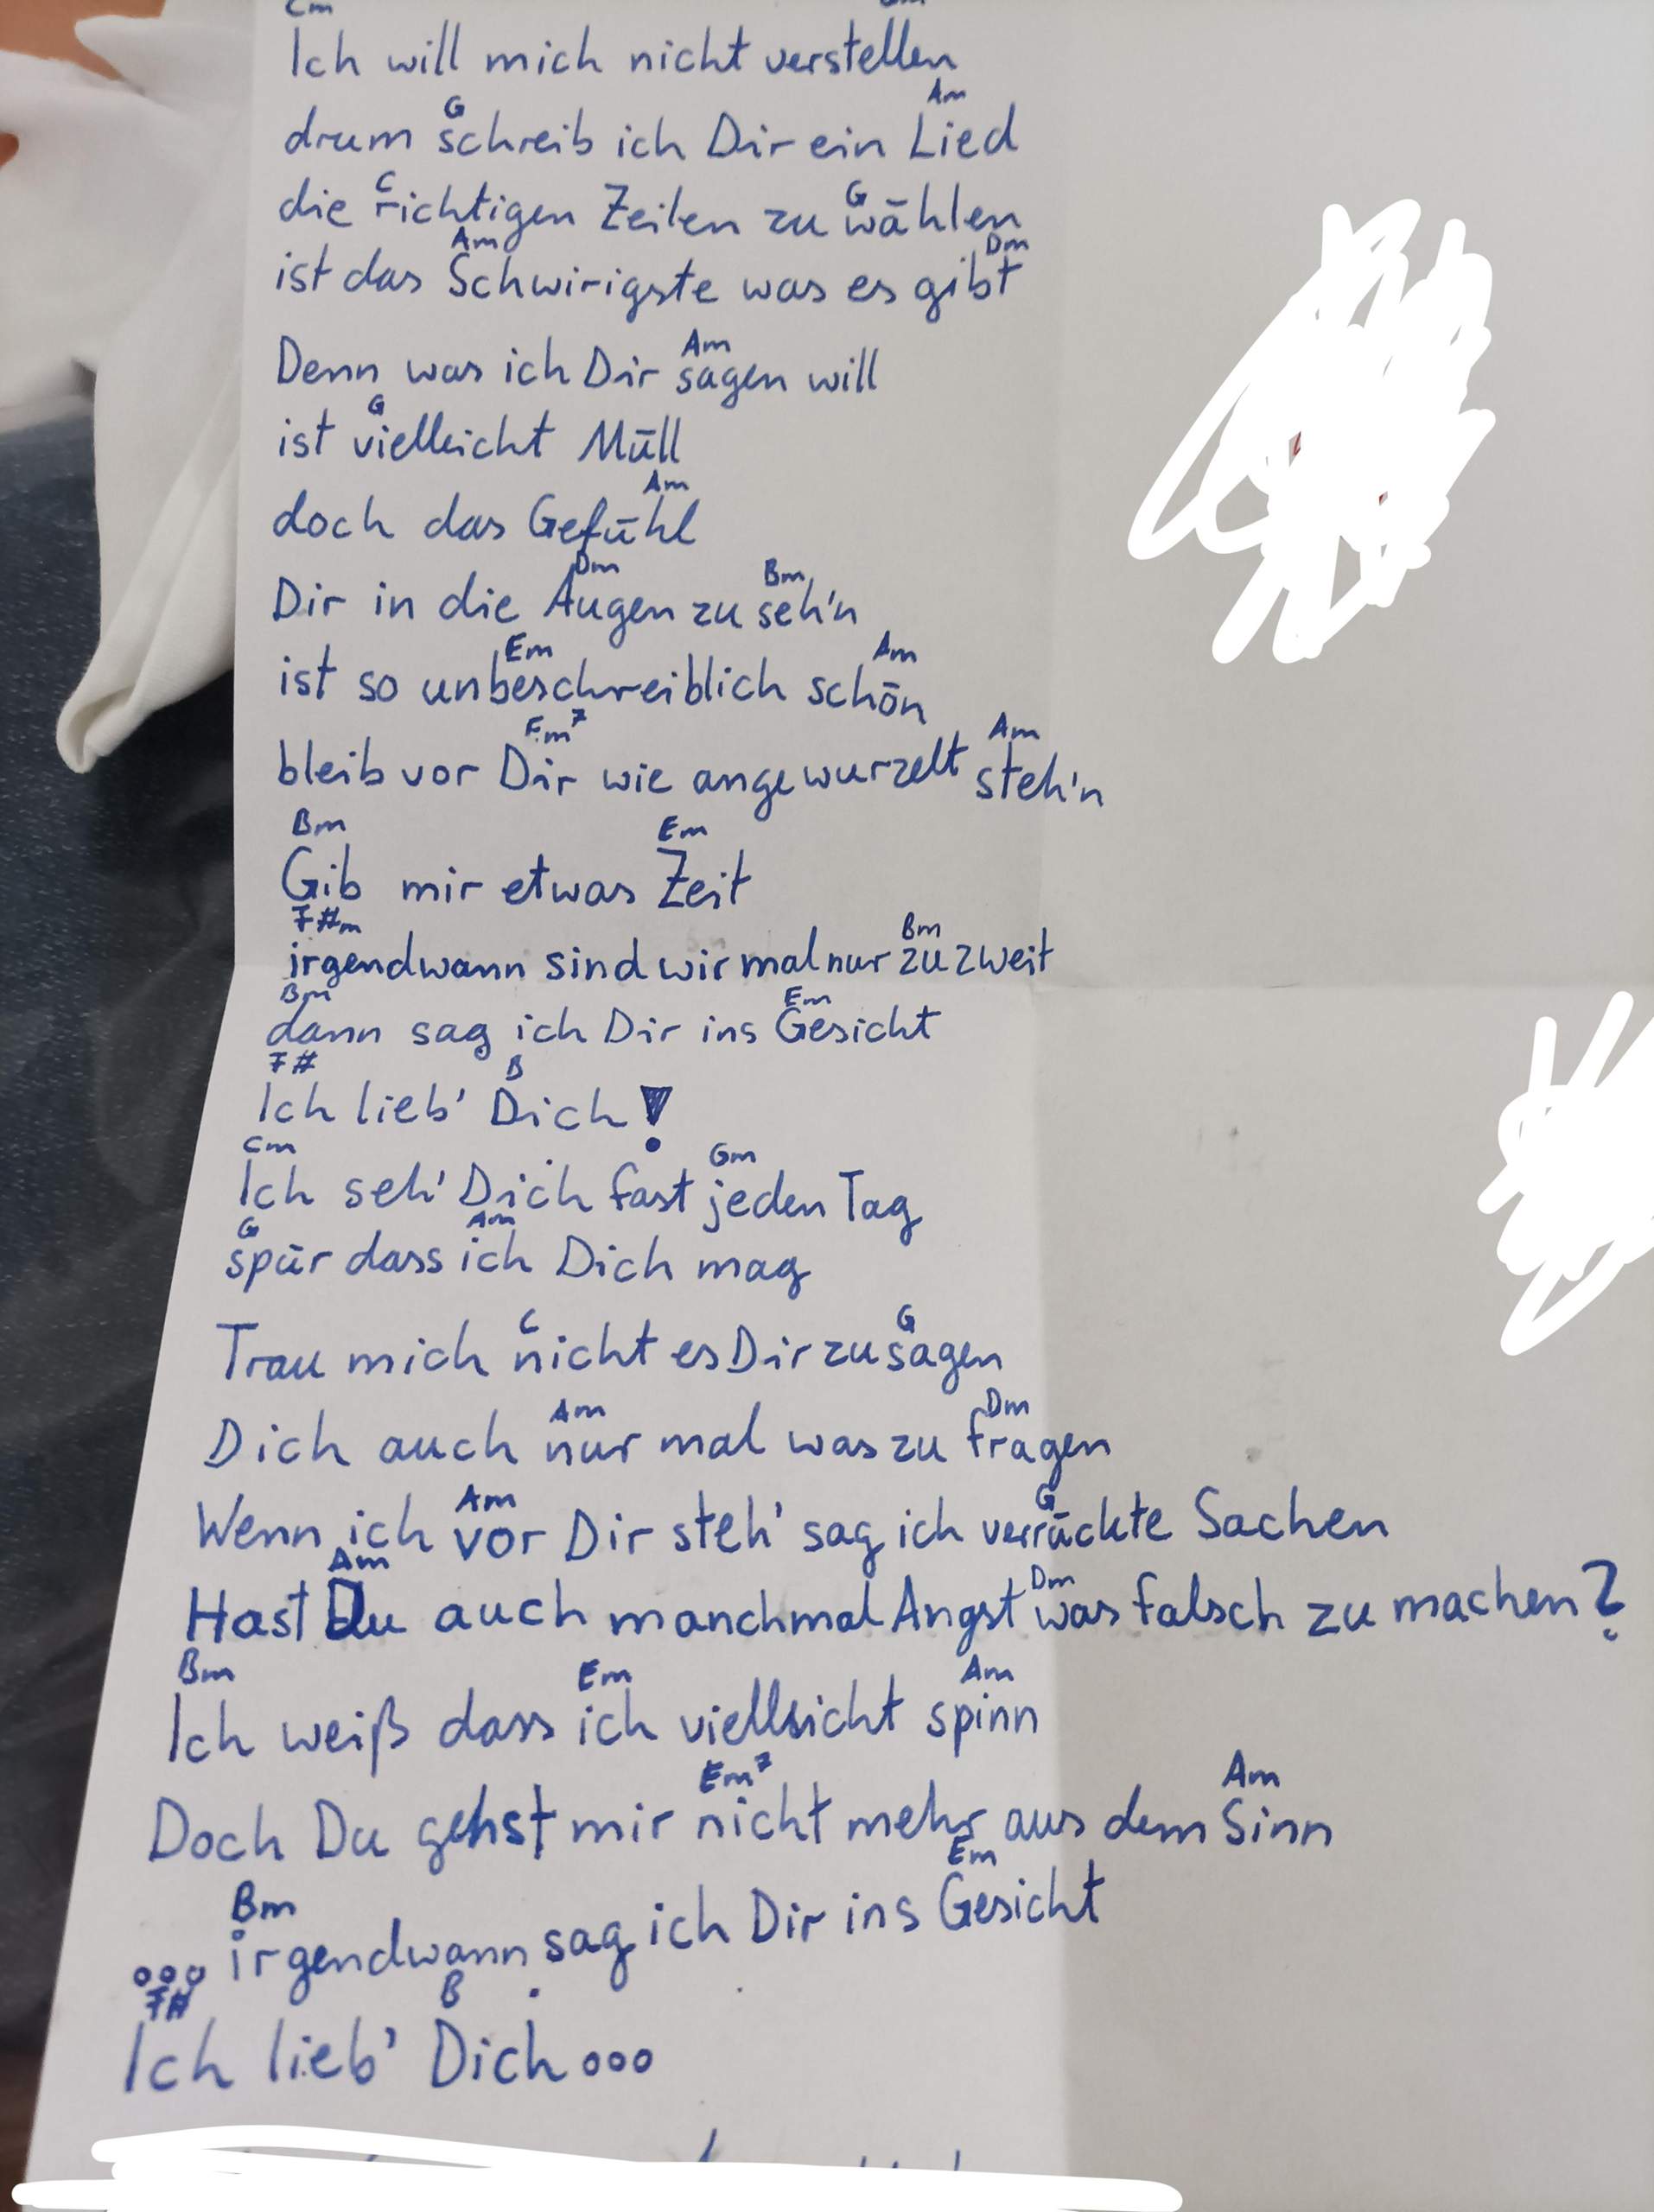 Cm
Ich will mich nicht verstellen
G Am
drum schreib ich Dir ein Lied
C G
die richtigen Zeilen zu wählen
Am Dm
ist das Schwirigste was es gibt
Am
Denn was ich Dir sagen will
G
ist vielleicht Müll
Am
doch das Gefühl
Dm Bm
Dir in die Augen zu seh'n
Em Am
ist so unbeschreiblich schön
Em7 Am
bleib vor Dir wie angewurzelt steh'n
Bm Em
Gib mir etwas Zeit
F#m Bm
irgendwann sind wir mal nur zu zweit
Bm Em
dann sag ich Dir ins Gesicht
F# B
Ich lieb' Dich!
Cm Gm
Ich seh' Dich fast jeden Tag
G Am
spür dass ich Dich mag
C G
Trau mich nicht es Dir zu sagen
Am Dm
Dich auch nur mal was zu fragen
Am G
Wenn ich vor Dir steh' sag ich verrückte Sachen
Am Dm
Hast Du auch manchmal Angst was falsch zu machen?
Bm Em Am
Ich weiß dass ich vielleicht spinn
Em7 Am
Doch Du gehst mir nicht mehr aus dem Sinn
Bm Em
... irgendwann sag ich Dir ins Gesicht
F# B
Ich lieb' Dich...